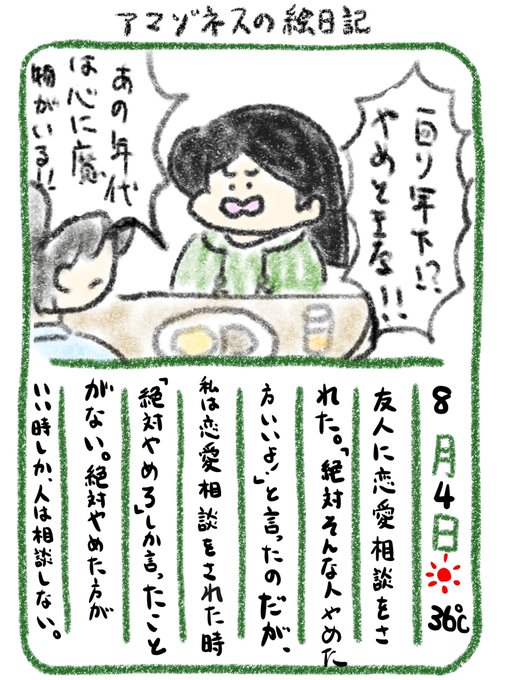 アマゾネスの絵日記
百り年下!?
やめときな!!
あの年代
は心に魔
物がいる!!
8月4日 36℃
友人に恋愛相談をさ
れた。「絶対そんな人やめた
方いいよ!」と言ったのだが、
私は恋愛相談をされた時
「絶対やめろ」しか言ったこと
がない。絶対やめた方が
いい時しか、人は相談しない。